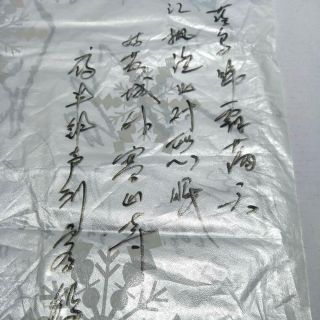 落乌啼霜满天
江枫渔火对愁眠
姑苏城外寒山寺
夜半钟声到客船